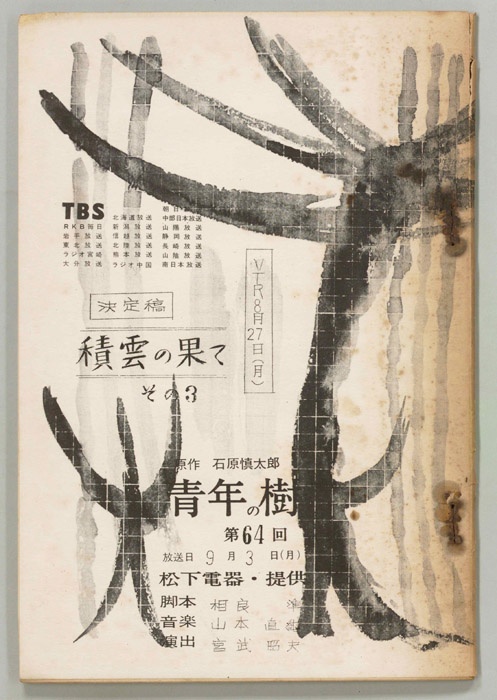 TBS
北海道放送 中部日本放送
RKB毎日 新潟放送 山陽放送
岩手放送 信越放送 静岡放送
東北放送 北陸放送 長崎放送
ラジオ宮崎 熊本放送 山陰放送
大分放送 ラジオ中国 南日本放送
VTR8月27日(月)
決定稿
積雲の果て
その3
原作 石原慎太郎
青年の樹
第64回
放送日 9月3日(月)
松下電器・提供
脚本 相良 準
音楽 山本 直純
演出 宮武 昭夫